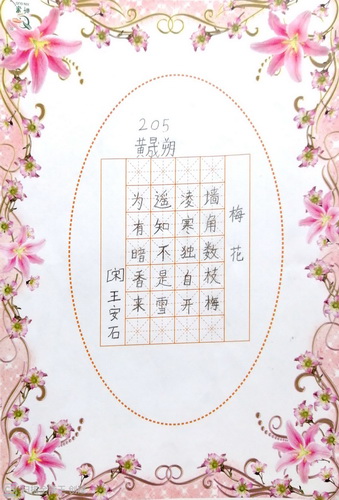 205
黄晟朔
梅花
墙角数枝梅
凌寒独自开
遥知不是雪
为有暗香来
[宋]王安石